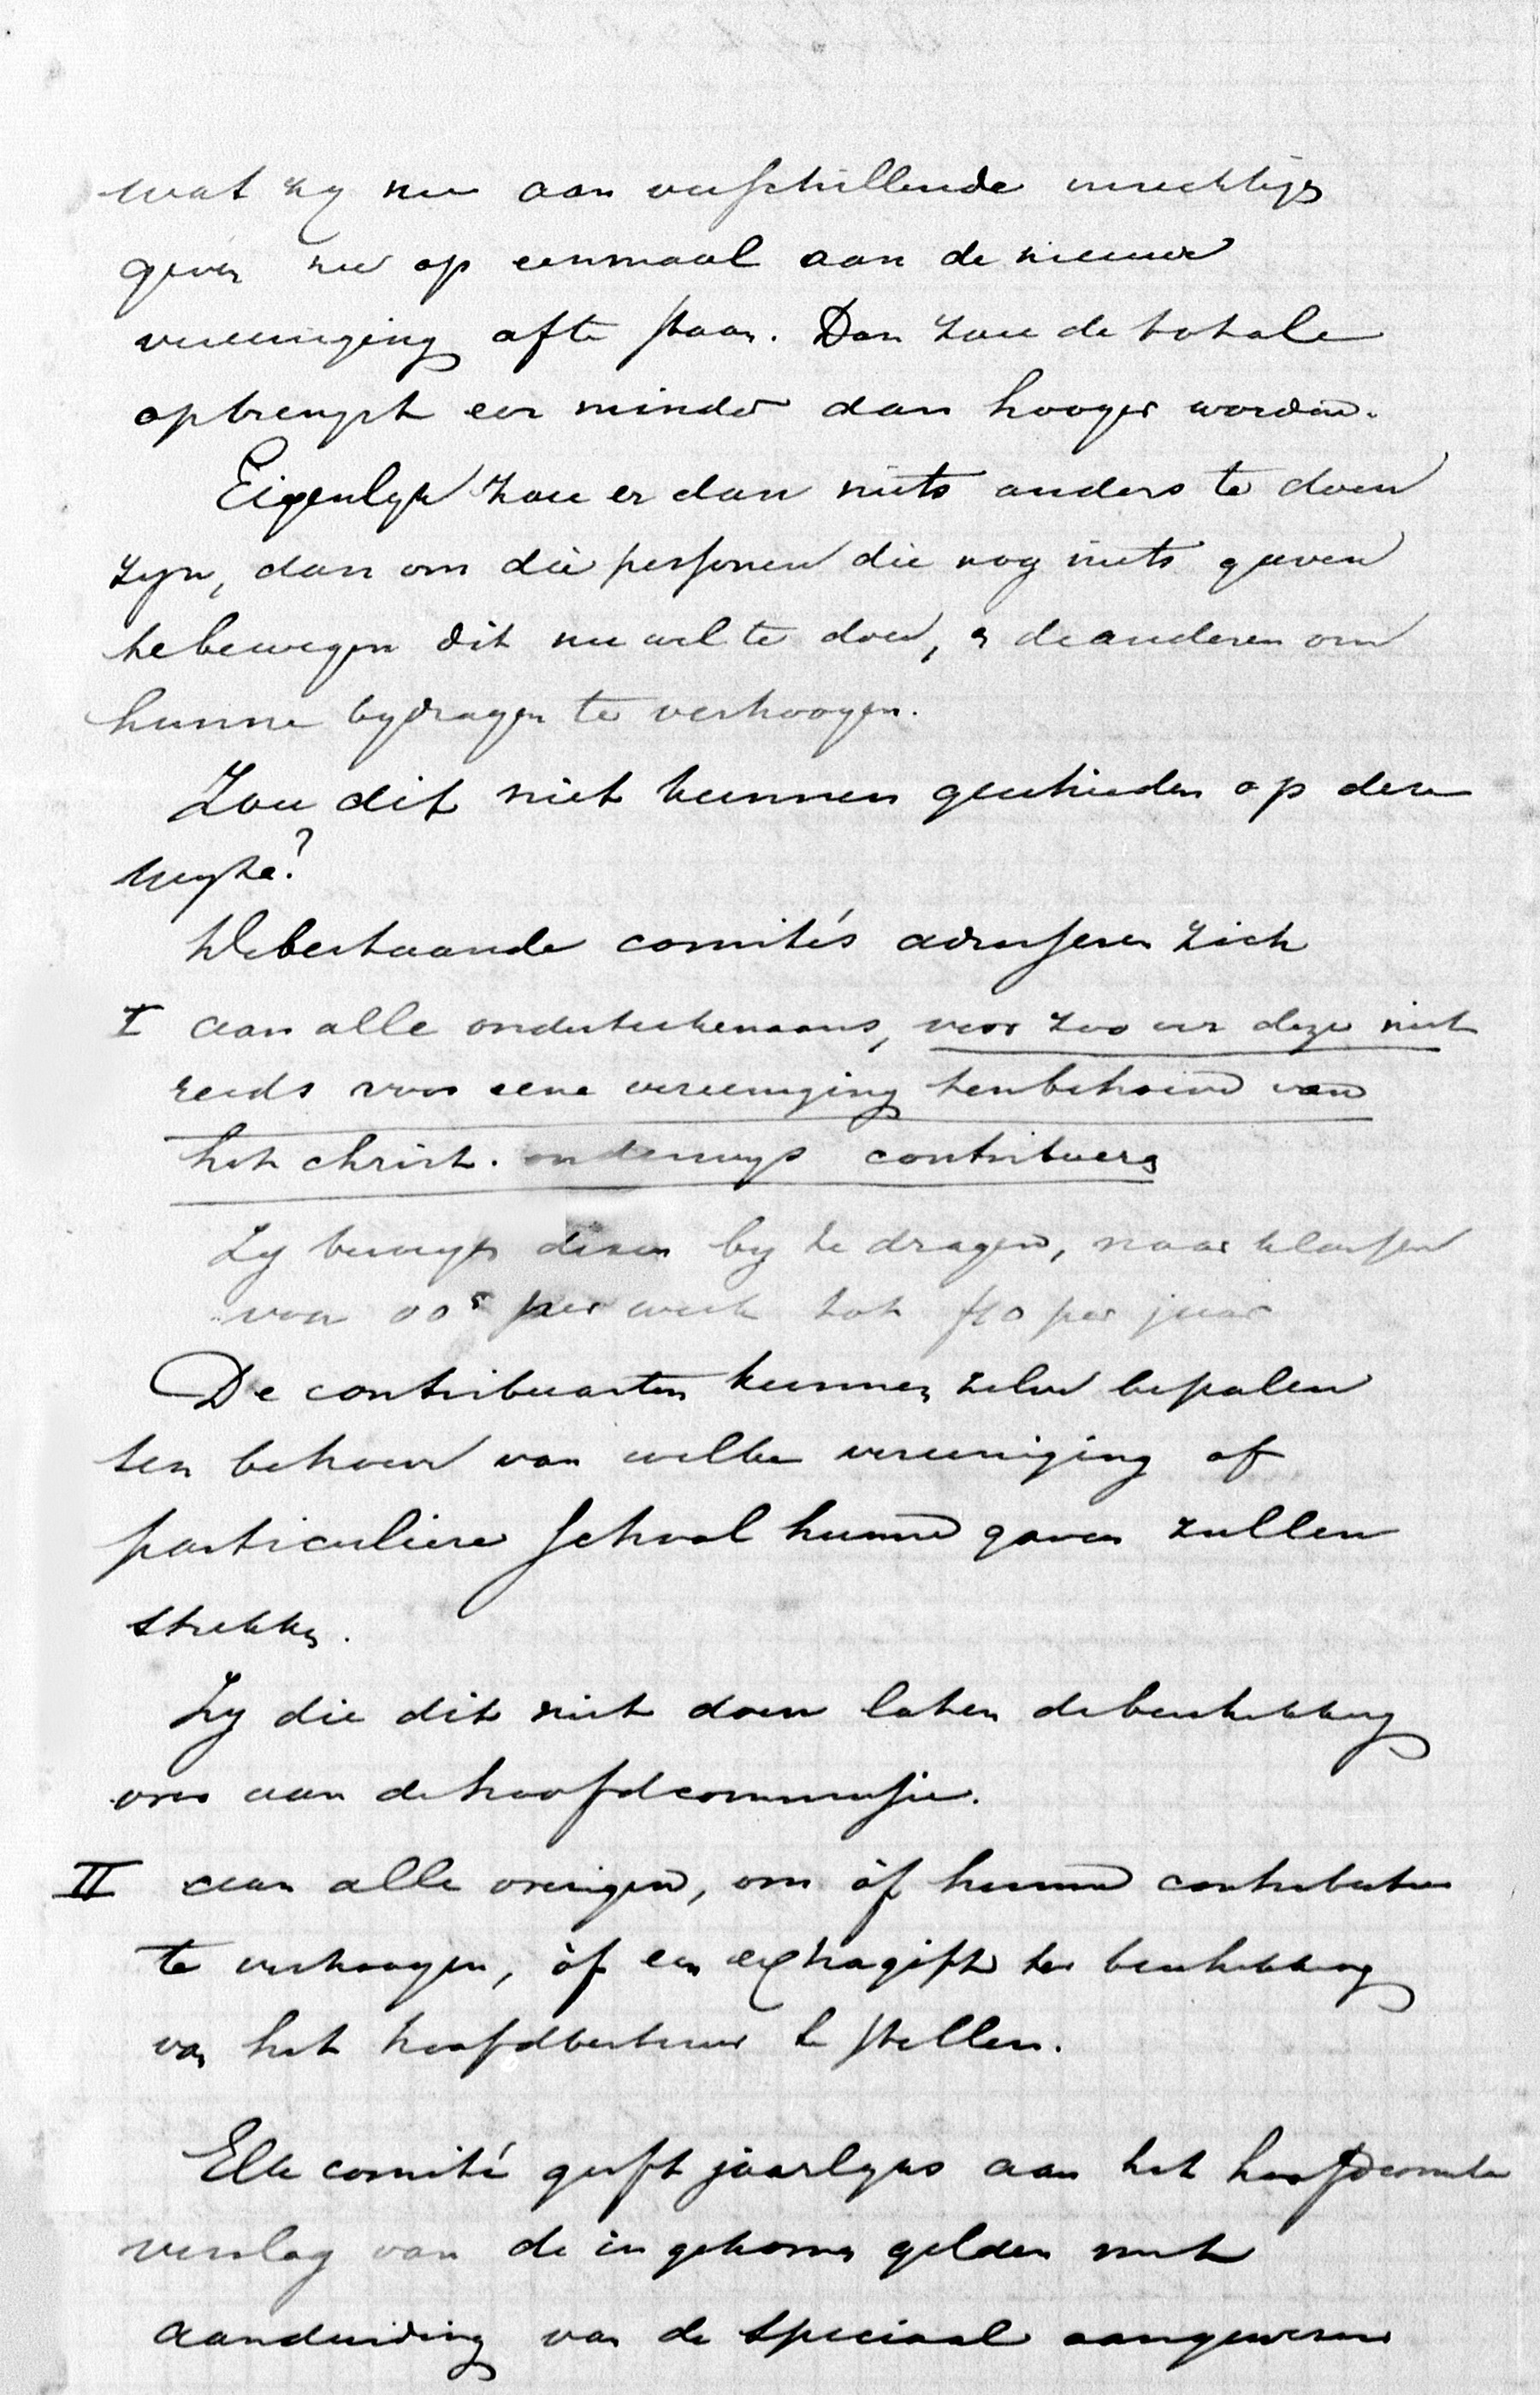 wat zy nu aan verschillende inrichtigs
geven nu op eenmaal aan de nieuwe
vereeniging afte staan. Dan zou de totale
opbrengst eer minder dan hooger worden.
Eigenlyk zou er dan niets anders te doen
zyn, dan om die personen die nog niets gaven
te bewegen dit nu wel te doen, & de anderen om
hunne bydragen te verhoogen.
Zou dit niet kunnen geschieden op deze
wyze?
De bestaande comités adresseren zich
I aan alle onderteekenaars, voor zoo ver deze niet
reeds voor eene vereeniging ten behoeve van
het christ. onderwys contribueren
Zy bewegen dezen by te dragen, naar klassen
van 00⁵ per week tot f10 per jaar
De contribuanten kunnen zelve bepalen
ten behoeve van welke vereeniging of
particuliere school hunne gaven zullen
strekken.
Zy die dit niet doen laten de beschikking
over aan de hoofdcommissie.
II aan alle overigen, om òf hunne contributie
te verhoogen, òf een extra gift ter beschikking
van het hoofdbestuur te stellen.
Elk comité geeft jaarlyks aan het hoofdcomite
verslag van de ingekomen gelden met
aanduiding van de speciaal aangewezene